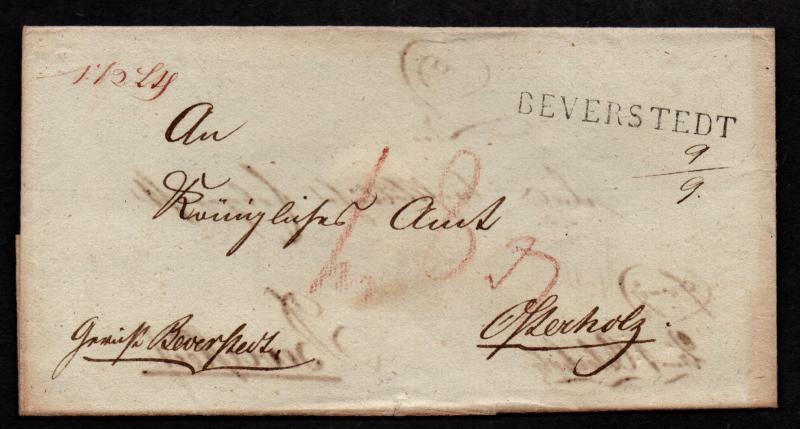 BEVERSTEDT
9/9.
An
Königliches Amt
Osterholz.
Gericht Beverstedt.